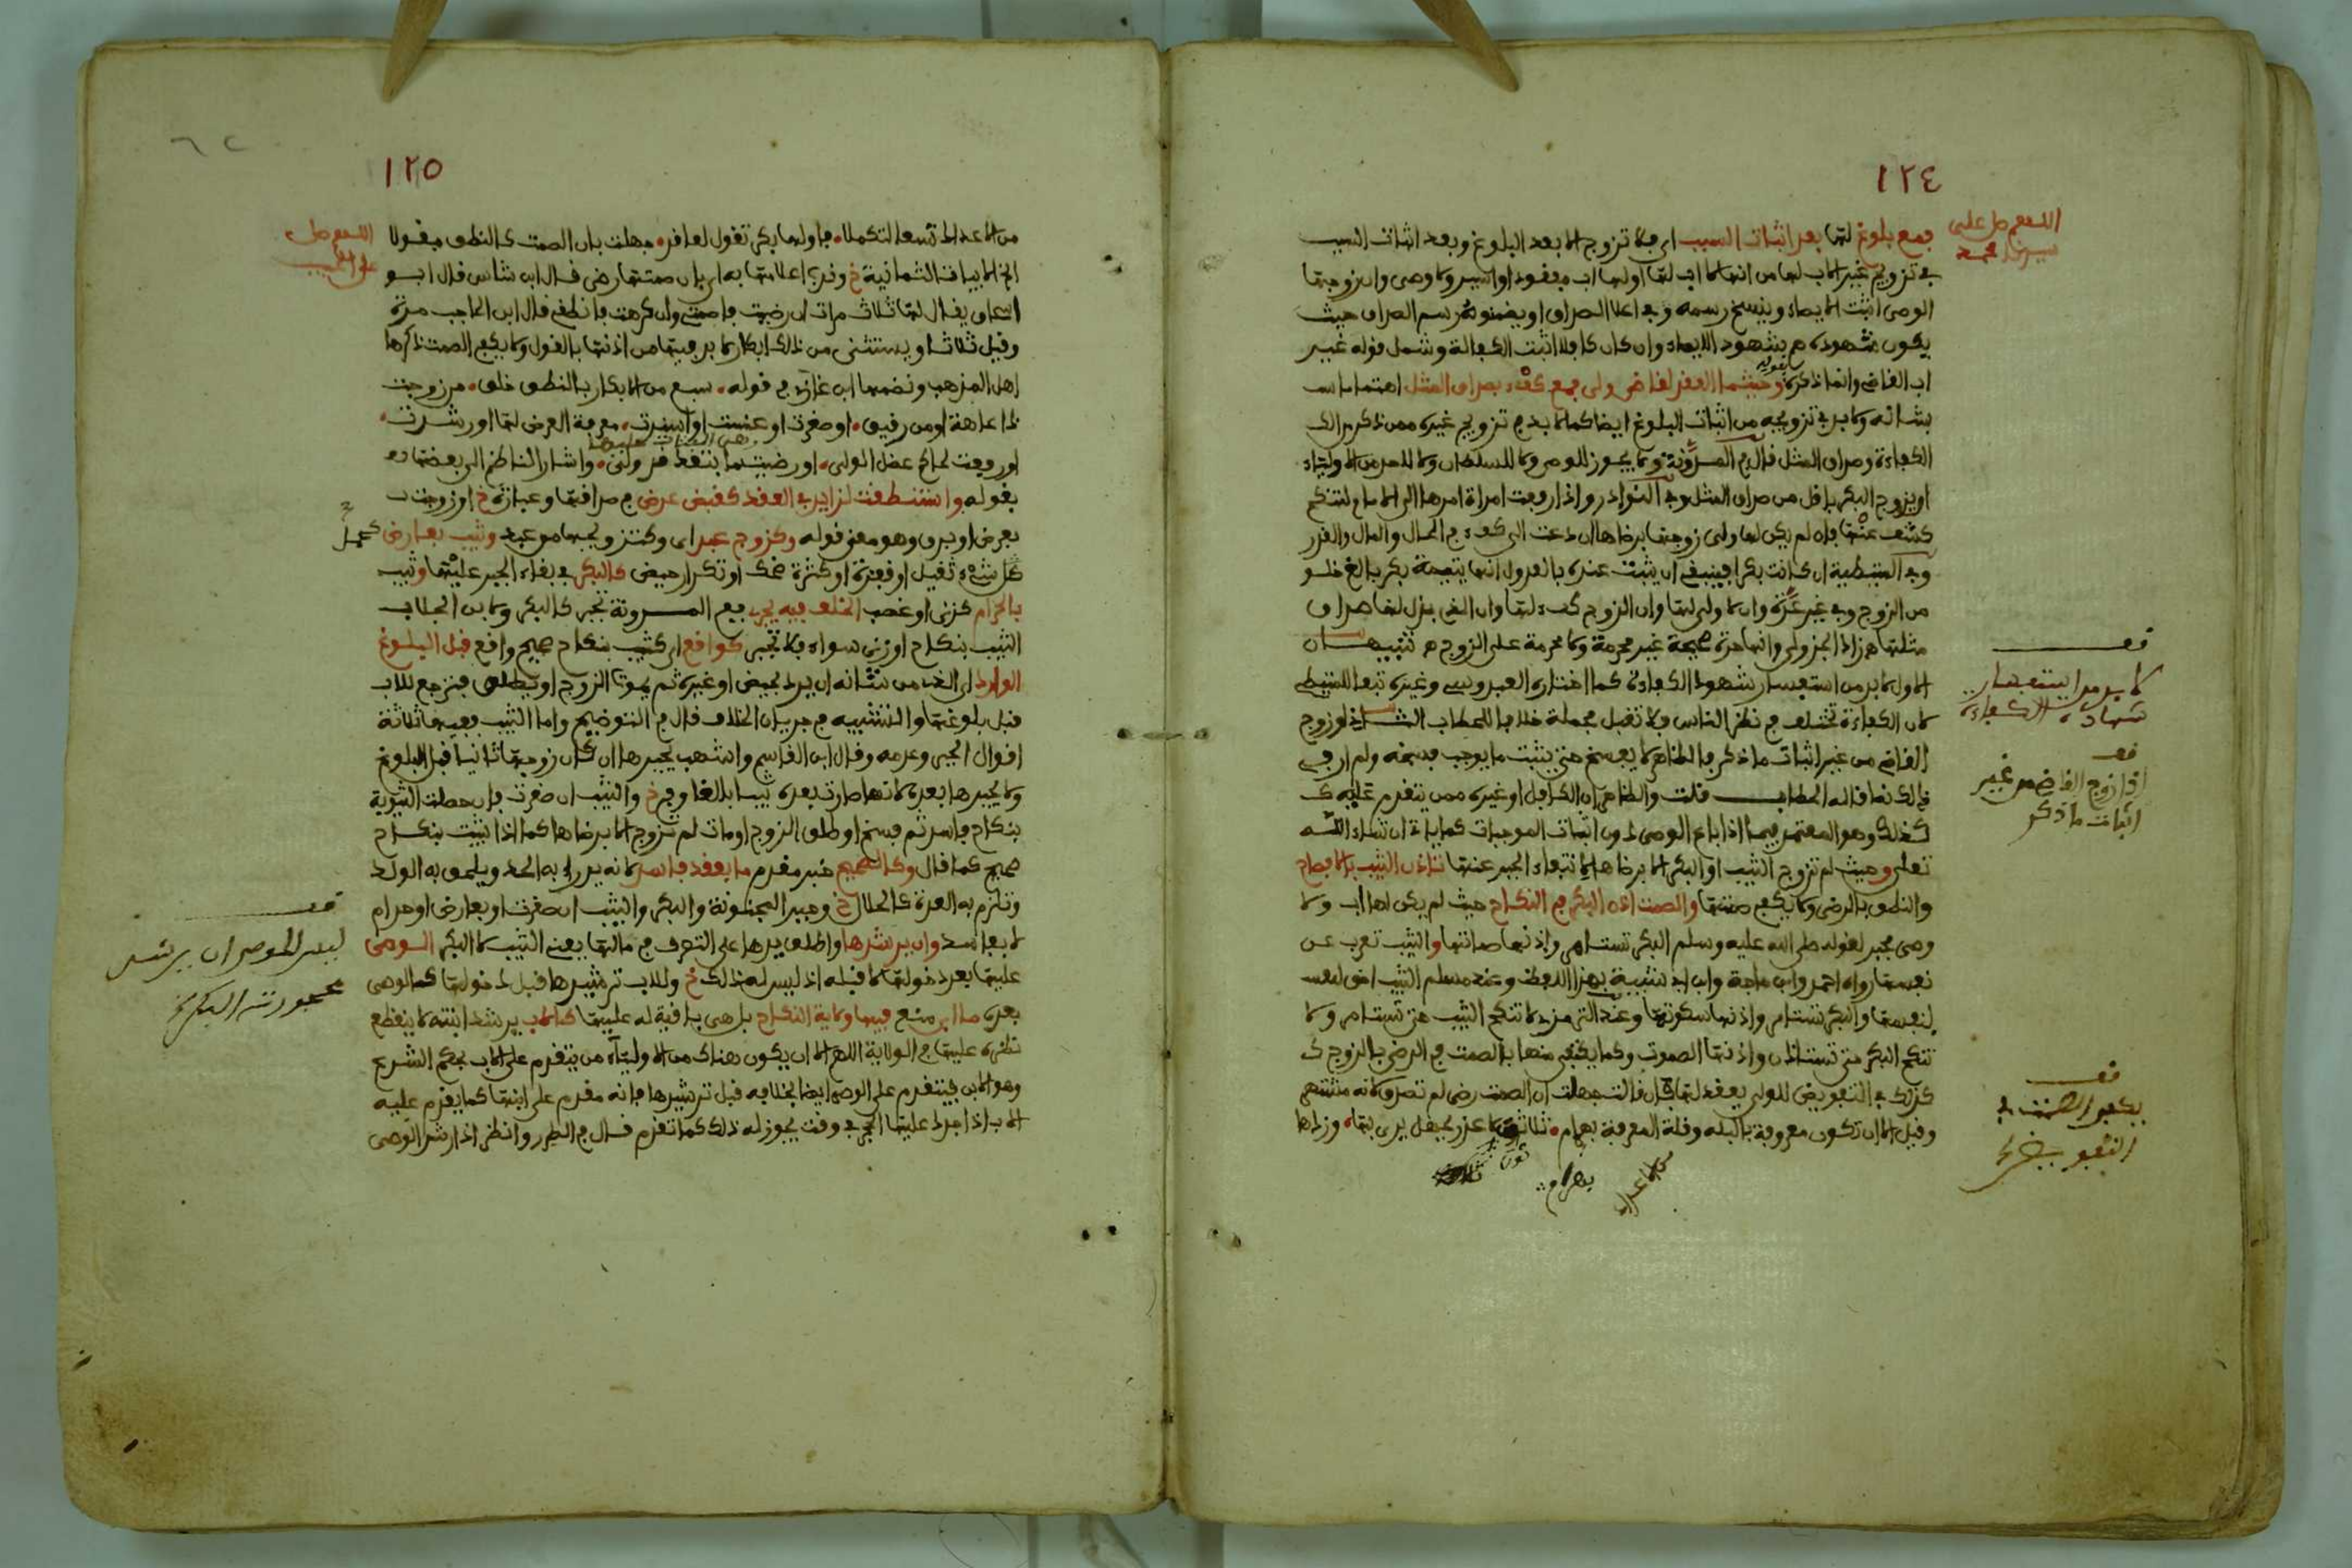 ١٢٤
اللهم صل على
سيدنا محمد
فمع بلوغ لها بعد اثبات السبب اي فلا تزوج الا بعد البلوغ وبعد اثبات السبب
في تزويج غير الاب لها من انها لا اب لها او لها اب مفقود او اسير ولا وصي وان زوجها
الوصي اثبت الايصاء وينسخ رسمه في اعلا الصداق او يضمنه رسم الصداق حيث
يكون شهوده هم شهود الايصاء وان كان كافلا اثبت الكفالة وشمل قوله غير
اب القاضي وانما ذكره بقوله وحيثما العقد لقاض ولي فمع كفء بصداق المثل اهتماما
بشانه ولا بد في تزويجه من اثبات البلوغ ايضا كما لا بد في تزويج غيره ممن ذكر
الكفاءة وصداق المثل قال في المدونة ولا يجوز للوصي ولا للسلطان ولا لاحد من الاولياء
ان يزوج البكر باقل من صداق المثل وفي النوادر واذا رفعت امراة امرها الى الامام لتنكح
كشف عنها فان لم يكن لها ولي زوجها برضاها ان دعت الى كفء في الحال والمال والقدر
وفي المتيطية ان كانت بكرا فينبغي ان يثبت عنده بالعدول انها يتيمة بكر بالغ خلو
من الزوج وفي غير عدة وان لا ولي لها وان الزوج كفء لها وان الذي بذل لها صداق
مثلها زاد الجزولي وانها حرة صحيحة غير محرمة ولا محرمة على الزوج تنبيهان
الاول لا بد من استفسار شهود الكفاءة كما اختاره العبدوسي وغيره تبعا للمتيطي
لان الكفاءة تختلف في نظر الناس فلا تقبل مجملة خلافا للحطاب الثاني لو زوج
القاضي من غير اثبات ما ذكر فالظاهر لا يفسخ حتى يثبت ما يوجب فسخه ولم ار في
ذلك نصا قاله الحطاب قلت والظاهر ان الكافل او غيره ممن تقدم عليه
كذلك وهو المعتمد فيما اذا باع الوصي دون اثبات الموجبات كما ياتي ان شاء الله
تعلى وحيث لم تزوج الثيب او البكر الا برضاها لانتفاء الجبر عنها تاذن الثيب بالافصاح
والنطق بالرضى ولا يكفي صمتها والصمت اذن البكر في النكاح حيث لم يكن لها اب ولا
وصي مجبر لقوله صلى الله عليه وسلم البكر تستامر واذنها صماتها والثيب تعرب عن
نفسها رواه احمد وابن ماجة وابن ابي شيبة بهذا اللفظ وعند مسلم الثيب احق
بنفسها والبكر تستامر واذنها سكوتها وعند الترمذي لا تنكح الثيب حتى تستامر ولا
تنكح البكر حتى تستاذن واذنها الصموت وكما يكفي منها بالصمت في الرضى بالزوج
كذلك في التفويض للولي يعقد لها فان قالت جهلت ان الصمت رضى لم تصدق لانه مشتهر
وقيل الا ان تكون معروفة بالبله وقلة المعرفة بهرام ثلاثة لا عذر بجهل يرى بها وزادها
لا بد من استفسار
شهادة الكفاءة
اذا زوج القاضي من غير
اثبات ما ذكر
يكفي الصمت في
التفويض
بهرام
١٢٥
اللهم صل
على الحبيب
من الاعداد تسعا لتكملا فاولها بكر تقول لعاقد جهلت بان الصمت كالنطق مقولا
الخ الابيات الثمانية خ وندب اعلامها به اي بان صمتها رضى قال ابن شاس قال ابو
اسحاق يقال لها ثلاث مرات ان رضيت فاصمتي وان كرهت فانطقي قال ابن الحاجب مرة
وقيل ثلاثا ويستثنى من ذلك ابكار لا بد فيها من اذنها بالقول ولا يكفي الصمت ذكرها
اهل المذهب ونضمها ابن غازي في قوله سبع من الابكار بالنطق خلق من زوجت
ذا عاهة او من رقيق او صغرت او عنست او اسندت معرفة العرض لها او رشدت
او رفعت لحاكم عضل الولي او رضيت ما بتعد قد ولي واشار الناظم الى بعضها
بقوله واستنطقت لزايد في العقد كقبض عرض في صداقها وعبارة خ او زوجت
بعرض او برق وهو معنى قوله وكزوج عبد اي وكتزويجها من عبد وثيب بعارض كحمل
شيء ثقيل او قفزة او كثرة ضحك او تكرار حيض كالبكر في بقاء الجبر عليها وثيب
بالحرام كزنى او غصب الخلف فيه يجري ففي المدونة تجبر كالبكر ولابن الجلاب
الثيب بنكاح او زنى سواء فلا تجبر كواقع اي كثيب بنكاح صحيح واقع قبل البلوغ
الوارد اي الذي من شانه ان يرد بحيض او غيره ثم يموت الزوج او يطلق فترجع للاب
قبل بلوغها والتشبيه في جريان الخلاف قال في التوضيح واما الثيب ففيها ثلاثة
اقوال الجبر وعدمه وقال ابن القاسم واشهب يجبرها ان كان زوجها ثانيا قبل البلوغ
ولا يجبرها بعده لانها صارت بعده ثيبا بالغا وفي خ والثيب ان صغرت فان حصلت الثيوبة
بنكاح فاسد ثم فسخ او طلق الزوج او مات لم تزوج الا برضاها كما اذا ثيبت بنكاح
صحيح كما قال وكالصحيح خبر مقدم ما بعقد فاسد لانه يدرا به الحد ويلحق به الولد
وتلزم به العدة كالحلال خ وجبر المجنونة والبكر والثيب ان صغرت او بعارض او حرام
لا بفاسد وان يرشدها واطلق يدها على التصرف في مالها يعني الثيب لا البكر الوصي
عليها بعد دخولها لا قبله اذ ليس له ذلك خ وللاب ترشيدها قبل دخولها كالوصي
بعده ما ان منع فيها ولاية النكاح بل هي باقية له عليها كالاب يرشد ابنته لا ينقطع
نظره عليها في الولاية اللهم الا ان يكون هناك من الاولياء من يتقدم على الاب بحكم الشرع
وهو الابن فيتقدم على الوصي ايضا بخلافه قبل ترشيدها فانه مقدم على ابنها كما يقدم عليه
الاب اذا جرد عليها الحجر في وقت يجوز له ذلك كما تقدم قال في الطرر وانظر اذا رشد الوصي
ليس للوصي ان يرشد
محجورته البكر